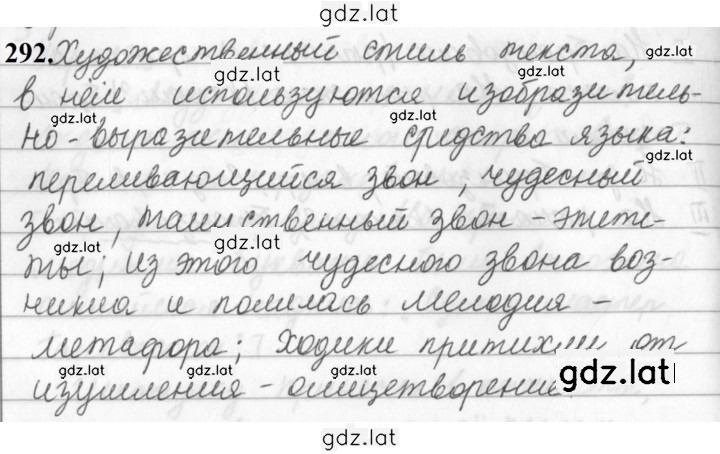 gdz.lat
292. Художественный стиль текста, gdz.lat
gdz.lat
в нём используются изобразитель-
gdz.lat gdz.lat
но-выразительные средства языка:
gdz.lat
переливающийся звон, чудесный
звон, таинственный звон - эпите-
gdz.lat gdz.lat
ты; из этого чудесного звона воз-
никла и полилась мелодия -
метафора; Ходики притихли от
gdz.lat gdz.lat gdz.lat
изумления - олицетворение.
gdz.lat